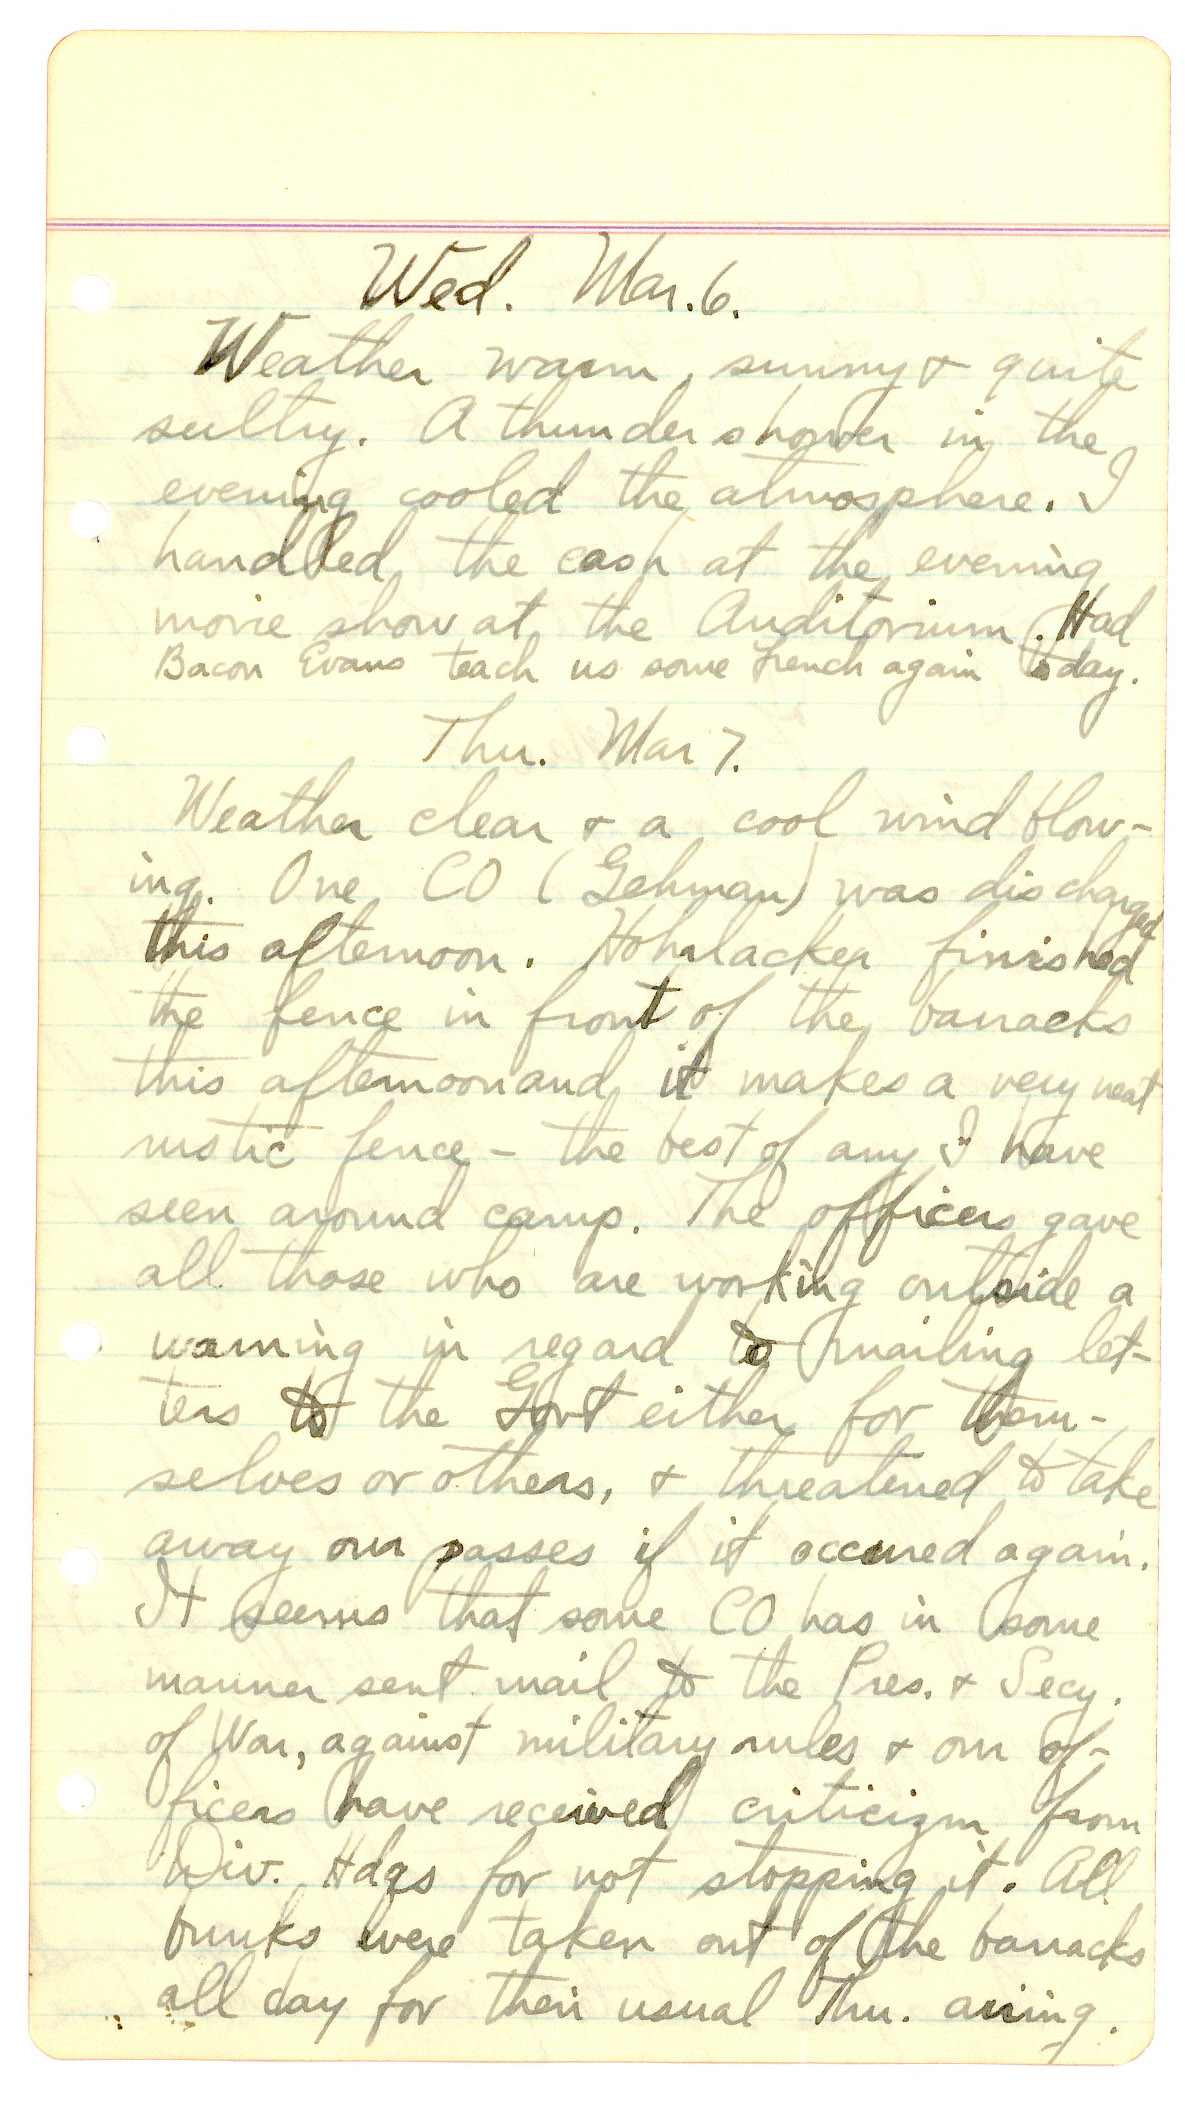 Wed. Mar. 6.
Weather warm, sunny & quite
sultry. A thunder shower in the
evening cooled the atmosphere. I
handled the cash at the evening
movie show at the Auditorium. Had
Bacon Evans teach us some French again today.
Thu. Mar 7.
Weather clear & a cool wind blow-
ing. One CO (Gehman) was discharged
this afternoon. Hohnlacker finished
the fence in front of the barracks
this afternoon and it makes a very neat
rustic fence – the best of any I have
seen around camp. The officers gave
all those who are working outside a
warning in regard to mailing let-
ters to the Govt either for them-
selves or others, & threatened to take
away our passes if it occured again.
It seems that some CO has in some
manner sent mail to the Pres. & Secy.
of War, against military rules & our of-
ficers have received criticizm from
Div. Hdqs for not stopping it. All
bunks were taken out of the barracks
all day for their usual Thu. airing.